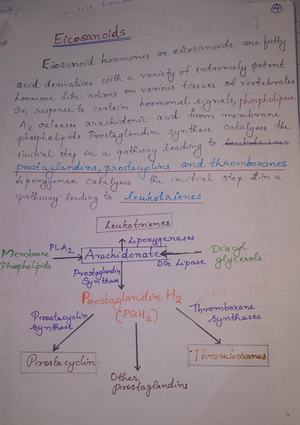 Eicosanoids
Eicosanoid hormones or eicosanoids are fatty
acid derivatives with a variety of extremely potent
hormone like actions on various tissues of vertebrates
In response to certain hormonal signals, phospholipase
A2 releases arachidonic acid from membrane
phospholipids Prostaglandin synthase catalyzes the
initial step in a pathway leading to
prostaglandins, prostacyclins and thromboxanes
lipoxygenase catalyzes the initial step in a
pathway leading to leukotrienes
Leukotrienes
Lipoxygenases
PLA2
Membrane
Phospholipids
Arachidonate
Diacyl
glycerols
DG Lipase
Prostaglandin
Synthase
Prostaglandin H2
(PGH2)
Prostacyclin
Synthase
Thromboxane
Synthases
Prostacyclin
Thromboxanes
Other
Prostaglandins